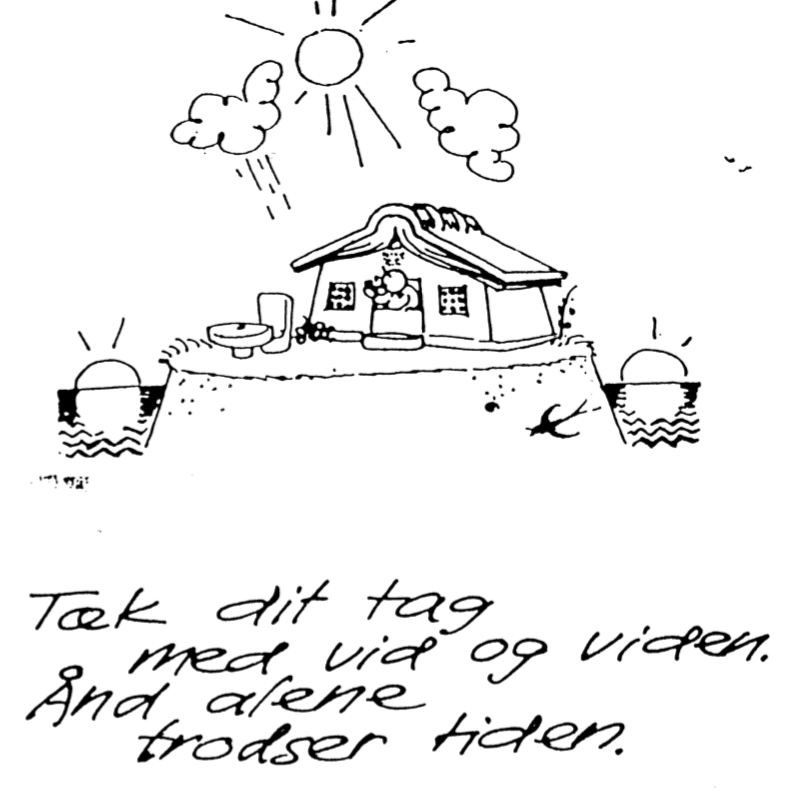 Tæk dit tag
med vid og viden.
Ånd alene
trodser tiden.